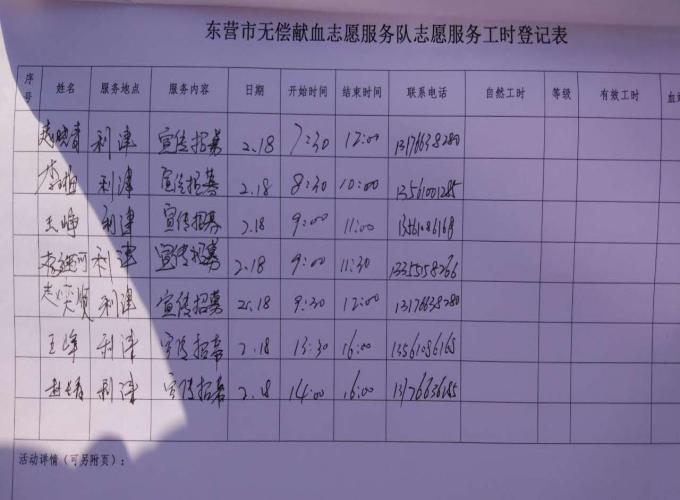 东营市无偿献血志愿服务队志愿服务工时登记表
序号 姓名 服务地点 服务内容 日期 开始时间 结束时间 联系电话 自然工时 等级 有效工时
利津 宣传招募 2.18 7:30 12:00 13176638280
利津 宣传招募 2.18 8:30 10:00 13561001285
王峥 利津 宣传招募 2.18 9:00 11:00
利津 宣传招募 2.18 9:00 11:30
利津 宣传招募 2.18 9:30 12:00 13176638280
王峰 利津 宣传招募 2.18 13:30 16:00 13561086168
利津 宣传招募 2.18 14:00 16:00
活动详情（可另附页）：